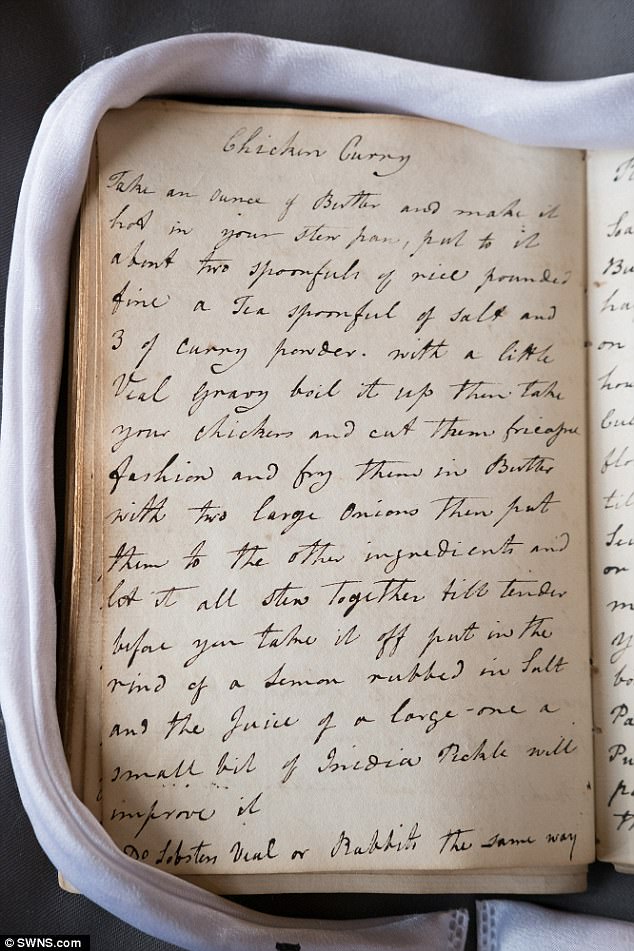 Chicken Curry
Take an ounce of Butter and make it
hot in your stew pan, put to it
about two spoonfuls of rice pounded
fine a Tea spoonful of salt and
3 of curry powder. with a little
Veal gravy boil it up then take
your chickens and cut them fricasse
fashion and fry them in Butter
with two large Onions then put
them to the other ingredients and
let it all stew together till tender
before you take it off put in the
rind of a Lemon rubbed in Salt
and the Juice of a large-one a
small bit of Inidia Pickle will
improve it
Do Lobsters Veal or Rabbits the same way
Bu
ha
on
flo
or
m
y
bo
Pa
Pu
© SWNS.com